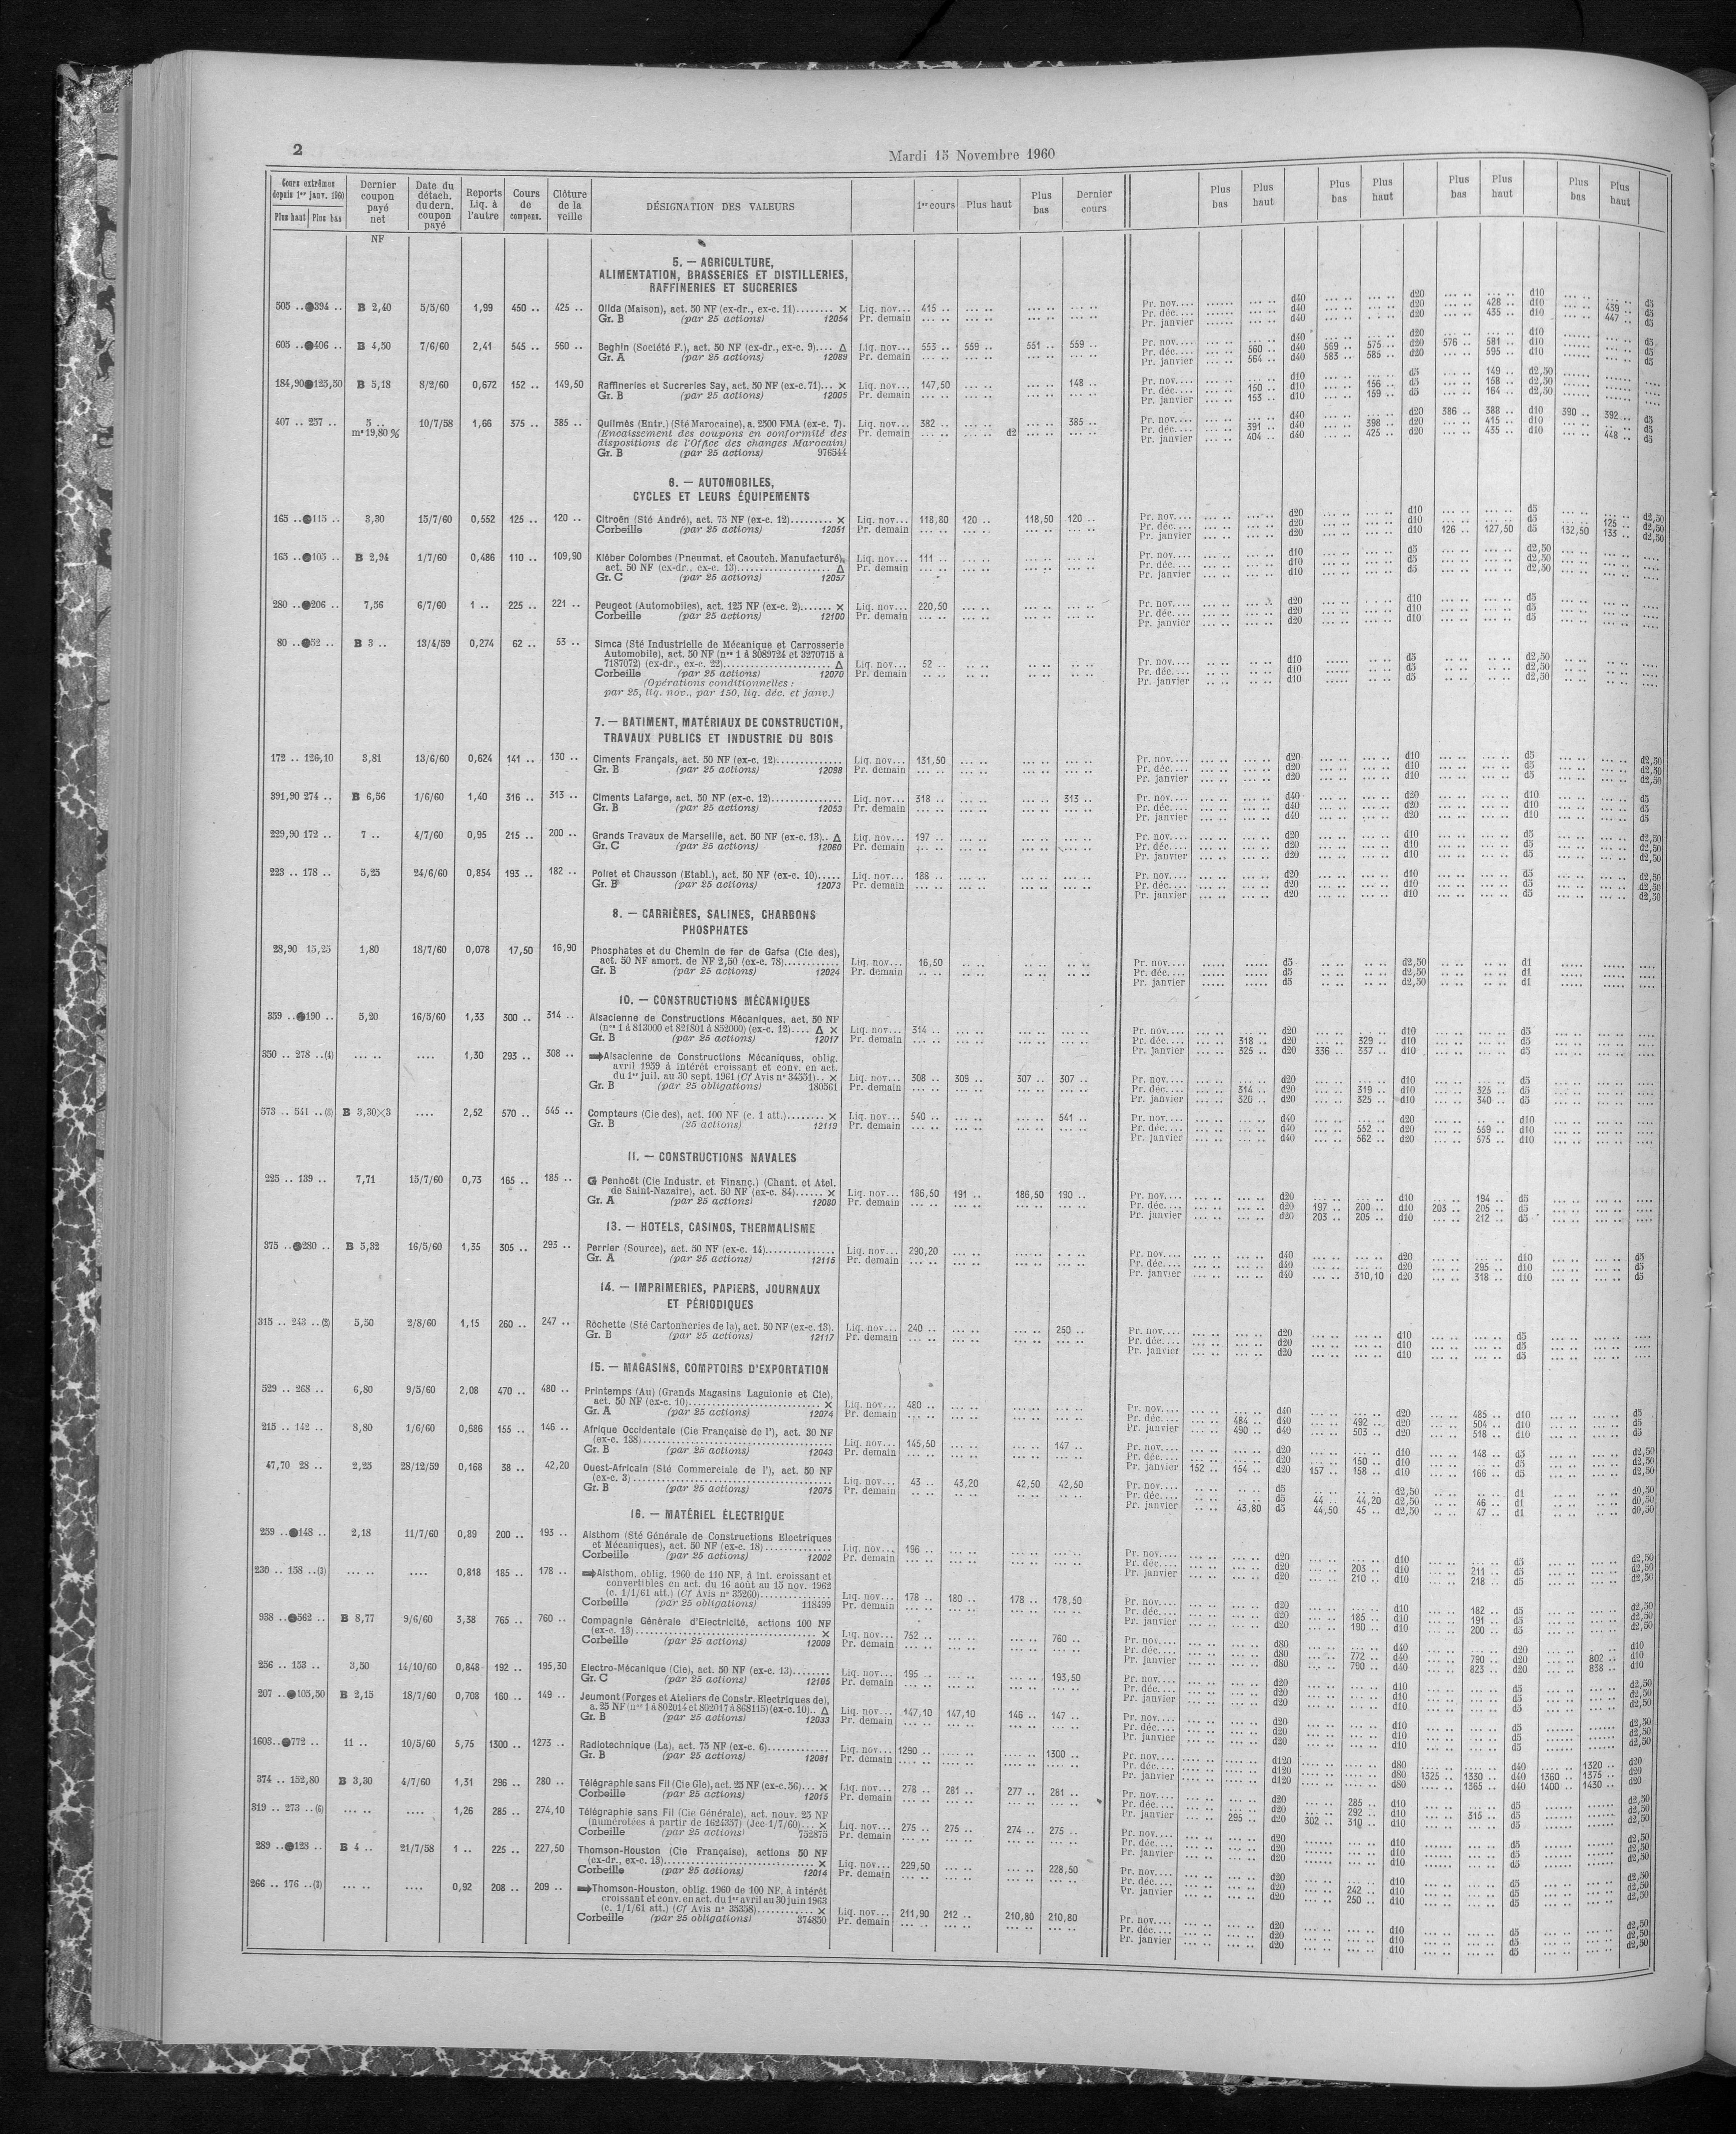 2
Mardi 15 Novembre 1960
Cours extrêmes depuis 1er janv. 1960 Plus haut Plus bas | Dernier coupon payé net | Date du détach. du dern. coupon payé | Reports Liq. à l'autre | Cours de compens. | Clôture de la veille | DÉSIGNATION DES VALEURS | 1er cours | Plus haut | Plus bas | Dernier cours | Plus bas | Plus haut | Plus bas | Plus haut | Plus bas | Plus haut | Plus bas | Plus haut
NF
5. — AGRICULTURE,
ALIMENTATION, BRASSERIES ET DISTILLERIES,
RAFFINERIES ET SUCRERIES
505 .. 394 .. B 2,40 5/5/60 1,99 450 .. 425 .. Olida (Maison), act. 50 NF (ex-dr., ex-c. 11)........ × Liq. nov... 415 ..
Gr. B (par 25 actions) 12054 Pr. demain
Pr. nov.... d40 d20 d10
Pr. déc.... d40 d20 428 .. d10 439 .. d5
Pr. janvier d40 d20 435 .. d10 447 .. d5
605 .. 406 .. B 4,50 7/6/60 2,41 545 .. 560 .. Beghin (Société F.), act. 50 NF (ex-dr., ex-c. 9).... Δ Liq. nov... 553 .. 559 .. 551 .. 559 ..
Gr. A (par 25 actions) 12089 Pr. demain
Pr. nov.... d40 d20 d10 d5
Pr. déc.... 560 .. d40 569 .. 575 .. d20 576 .. 581 .. d10 d5
Pr. janvier 564 .. d40 583 .. 585 .. d20 595 .. d10 d5
184,90 125,50 B 5,18 8/2/60 0,672 152 .. 149,50 Raffineries et Sucreries Say, act. 50 NF (ex-c. 71)... × Liq. nov... 147,50 148 ..
Gr. B (par 25 actions) 12005 Pr. demain
Pr. nov.... d10 d5 149 .. d2,50
Pr. déc.... 150 .. d10 156 .. d5 158 .. d2,50
Pr. janvier 153 .. d10 159 .. d5 164 .. d2,50
407 .. 257 .. 5 .. 10/7/58 1,66 375 .. 385 .. Quilmès (Entr.) (Sté Marocaine), a. 2500 FMA (ex-c. 7). Liq. nov... 382 .. 385 ..
mª 19,80 % (Encaissement des coupons en conformité des Pr. demain d2
dispositions de l'Office des changes Marocain)
Gr. B (par 25 actions) 976544
Pr. nov.... d40 d20 386 .. 388 .. d10 390 .. 392 .. d5
Pr. déc.... 391 .. d40 398 .. d20 415 .. d10 d5
Pr. janvier 404 .. d40 425 .. d20 435 .. d10 448 .. d5
6. — AUTOMOBILES,
CYCLES ET LEURS ÉQUIPEMENTS
165 .. 115 .. 3,30 15/7/60 0,552 125 .. 120 .. Citroën (Sté André), act. 75 NF (ex-c. 12)......... × Liq. nov... 118,80 120 .. 118,50 120 ..
Corbeille (par 25 actions) 12051 Pr. demain
Pr. nov.... d20 d10 d5 d2,50
Pr. déc.... d20 d10 d5 125 .. d2,50
Pr. janvier d20 d10 126 .. 127,50 d5 132,50 133 .. d2,50
165 .. 105 .. B 2,94 1/7/60 0,486 110 .. 109,90 Kléber Colombes (Pneumat. et Caoutch. Manufacturé), Liq. nov... 111 ..
act. 50 NF (ex-dr., ex-c. 13).................... Δ Pr. demain
Gr. C (par 25 actions) 12057
Pr. nov.... d10 d5 d2,50
Pr. déc.... d10 d5 d2,50
Pr. janvier d10 d5 d2,50
280 .. 206 .. 7,56 6/7/60 1 .. 225 .. 221 .. Peugeot (Automobiles), act. 125 NF (ex-c. 2)....... × Liq. nov... 220,50
Corbeille (par 25 actions) 12100 Pr. demain
Pr. nov.... d20 d10 d5
Pr. déc.... d20 d10 d5
Pr. janvier d20 d10 d5
80 .. 52 .. B 3 .. 13/4/59 0,274 62 .. 53 .. Simca (Sté Industrielle de Mécanique et Carrosserie
Automobile), act. 50 NF (nos 1 à 3089724 et 3270715 à
7187072) (ex-dr., ex-c. 22)........................ Δ Liq. nov... 52 ..
Corbeille (par 25 actions) 12070 Pr. demain
(Opérations conditionnelles :
par 25, liq. nov., par 150, liq. déc. et janv.)
Pr. nov.... d10 d5 d2,50
Pr. déc.... d10 d5 d2,50
Pr. janvier d10 d5 d2,50
7. — BATIMENT, MATÉRIAUX DE CONSTRUCTION,
TRAVAUX PUBLICS ET INDUSTRIE DU BOIS
172 .. 126,10 3,81 13/6/60 0,624 141 .. 130 .. Ciments Français, act. 50 NF (ex-c. 12)............. Liq. nov... 131,50
Gr. B (par 25 actions) 12098 Pr. demain
Pr. nov.... d20 d10 d5 d2,50
Pr. déc.... d20 d10 d5 d2,50
Pr. janvier d20 d10 d5 d2,50
391,90 274 .. B 6,56 1/6/60 1,40 316 .. 313 .. Ciments Lafarge, act. 50 NF (ex-c. 12).............. Liq. nov... 318 .. 313 ..
Gr. B (par 25 actions) 12053 Pr. demain
Pr. nov.... d40 d20 d10 d5
Pr. déc.... d40 d20 d10 d5
Pr. janvier d40 d20 d10 d5
229,90 172 .. 7 .. 4/7/60 0,95 215 .. 200 .. Grands Travaux de Marseille, act. 50 NF (ex-c. 13).. Δ Liq. nov... 197 ..
Gr. C (par 25 actions) 12060 Pr. demain
Pr. nov.... d20 d10 d5 d2,50
Pr. déc.... d20 d10 d5 d2,50
Pr. janvier d20 d10 d5 d2,50
223 .. 178 .. 5,25 24/6/60 0,854 193 .. 182 .. Poliet et Chausson (Etabl.), act. 50 NF (ex-c. 10)..... Liq. nov... 188 ..
Gr. B (par 25 actions) 12073 Pr. demain
Pr. nov.... d20 d10 d5 d2,50
Pr. déc.... d20 d10 d5 d2,50
Pr. janvier d20 d10 d5 d2,50
8. — CARRIÈRES, SALINES, CHARBONS
PHOSPHATES
28,90 15,25 1,80 18/7/60 0,078 17,50 16,90 Phosphates et du Chemin de fer de Gafsa (Cie des),
act. 50 NF amort. de NF 2,50 (ex-c. 78)............ Liq. nov... 16,50
Gr. B (par 25 actions) 12024 Pr. demain
Pr. nov.... d5 d2,50 d1
Pr. déc.... d5 d2,50 d1
Pr. janvier d5 d2,50 d1
10. — CONSTRUCTIONS MÉCANIQUES
359 .. 190 .. 5,20 16/5/60 1,33 300 .. 314 .. Alsacienne de Constructions Mécaniques, act. 50 NF
(nos 1 à 813000 et 821801 à 852000) (ex-c. 12).... Δ × Liq. nov... 314 ..
Gr. B (par 25 actions) 12017 Pr. demain
Pr. nov.... d20 d10 d5
Pr. déc.... 318 .. d20 329 .. d10 d5
Pr. janvier 325 .. d20 336 .. 337 .. d10 d5
350 .. 278 ..(4) 1,30 293 .. 308 .. ➡Alsacienne de Constructions Mécaniques, oblig.
avril 1959 à intérêt croissant et conv. en act.
du 1er juil. au 30 sept. 1961 (Cf Avis nº 34551).. × Liq. nov... 308 .. 309 .. 307 .. 307 ..
Gr. B (par 25 obligations) 180561 Pr. demain
Pr. nov.... d20 d10 d5
Pr. déc.... 314 .. d20 319 .. d10 325 .. d5
Pr. janvier 320 .. d20 325 .. d10 340 .. d5
573 .. 541 .. B 3,30×3 .... 2,52 570 .. 545 .. Compteurs (Cie des), act. 100 NF (c. 1 att.)........ × Liq. nov... 540 .. 541 ..
Gr. B (25 actions) 12119 Pr. demain
Pr. nov.... d40 d20 d10
Pr. déc.... d40 552 .. d20 559 .. d10
Pr. janvier d40 562 .. d20 575 .. d10
11. — CONSTRUCTIONS NAVALES
225 .. 139 .. 7,71 15/7/60 0,73 165 .. 185 .. G Penhoët (Cie Industr. et Financ.) (Chant. et Atel.
de Saint-Nazaire), act. 50 NF (ex-c. 84)...... × Liq. nov... 186,50 191 .. 186,50 190 ..
Gr. A (par 25 actions) 12080 Pr. demain
Pr. nov.... d20 d10 194 .. d5
Pr. déc.... d20 197 .. 200 .. d10 203 .. 205 .. d5
Pr. janvier d20 203 .. 205 .. d10 212 .. d5
13. — HOTELS, CASINOS, THERMALISME
375 .. 280 .. B 5,32 16/5/60 1,35 305 .. 293 .. Perrier (Source), act. 50 NF (ex-c. 14).............. Liq. nov... 290,20
Gr. A (par 25 actions) 12115 Pr. demain
Pr. nov.... d40 d20 d10 d5
Pr. déc.... d40 d20 295 .. d10 d5
Pr. janvier d40 310,10 d20 318 .. d10 d5
14. — IMPRIMERIES, PAPIERS, JOURNAUX
ET PÉRIODIQUES
315 .. 243 ..(2) 5,50 2/8/60 1,15 260 .. 247 .. Rochette (Sté Cartonneries de la), act. 50 NF (ex-c. 13). Liq. nov... 240 .. 250 ..
Gr. B (par 25 actions) 12117 Pr. demain
Pr. nov.... d20 d10 d5
Pr. déc.... d20 d10 d5
Pr. janvier d20 d10 d5
15. — MAGASINS, COMPTOIRS D'EXPORTATION
529 .. 268 .. 6,80 9/5/60 2,08 470 .. 480 .. Printemps (Au) (Grands Magasins Laguionie et Cie),
act. 50 NF (ex-c. 10)............................ × Liq. nov... 480 ..
Gr. A (par 25 actions) 12074 Pr. demain
Pr. nov.... d40 d20 485 .. d10 d5
Pr. déc.... 484 .. d40 492 .. d20 504 .. d10 d5
Pr. janvier 490 .. d40 503 .. d20 518 .. d10 d5
215 .. 142 .. 8,80 1/6/60 0,686 155 .. 146 .. Afrique Occidentale (Cie Française de l'), act. 30 NF
(ex-c. 138)........................................ Liq. nov... 145,50 147 ..
Gr. B (par 25 actions) 12043 Pr. demain
Pr. nov.... d20 d10 148 .. d5 d2,50
Pr. déc.... d20 150 .. d10 d5 d2,50
Pr. janvier 152 .. 154 .. d20 157 .. 158 .. d10 166 .. d5 d2,50
47,70 28 .. 2,25 28/12/59 0,168 38 .. 42,20 Ouest-Africain (Sté Commerciale de l'), act. 50 NF
(ex-c. 3).......................................... Liq. nov... 43 .. 43,20 42,50 42,50
Gr. B (par 25 actions) 12075 Pr. demain
Pr. nov.... d5 d2,50 d1 d0,50
Pr. déc.... d5 44 .. 44,20 d2,50 46 .. d1 d0,50
Pr. janvier 43,80 d5 44,50 45 .. d2,50 47 .. d1 d0,50
16. — MATÉRIEL ÉLECTRIQUE
259 .. 148 .. 2,18 11/7/60 0,89 200 .. 193 .. Alsthom (Sté Générale de Constructions Electriques
et Mécaniques), act. 50 NF (ex-c. 18).............. Liq. nov... 196 ..
Corbeille (par 25 actions) 12002 Pr. demain
Pr. nov.... d20 d10 d5 d2,50
Pr. déc.... d20 203 .. d10 211 .. d5 d2,50
Pr. janvier d20 210 .. d10 218 .. d5 d2,50
230 .. 158 ..(3) .... 0,818 185 .. 178 .. ➡Alsthom, oblig. 1960 de 110 NF, à int. croissant et
convertibles en act. du 16 août au 15 nov. 1962
(c. 1/1/61 att.) (Cf Avis nº 35260)............... Liq. nov... 178 .. 180 .. 178 .. 178,50
Corbeille (par 25 obligations) 118499 Pr. demain
Pr. nov.... d20 d10 182 .. d5 d2,50
Pr. déc.... d20 185 .. d10 191 .. d5 d2,50
Pr. janvier d20 190 .. d10 200 .. d5 d2,50
938 .. 562 .. B 8,77 9/6/60 3,38 765 .. 760 .. Compagnie Générale d'Electricité, actions 100 NF
(ex-c. 13)....................................... × Liq. nov... 752 .. 760 ..
Corbeille (par 25 actions) 12009 Pr. demain
Pr. nov.... d80 d40 d20 d10
Pr. déc.... d80 772 .. d40 790 .. d20 802 .. d10
Pr. janvier d80 790 .. d40 823 .. d20 838 .. d10
256 .. 153 .. 3,50 14/10/60 0,848 192 .. 195,30 Electro-Mécanique (Cie), act. 50 NF (ex-c. 13)........ Liq. nov... 195 .. 193,50
Gr. C (par 25 actions) 12105 Pr. demain
Pr. nov.... d20 d10 d5 d2,50
Pr. déc.... d20 d10 d5 d2,50
Pr. janvier d20 d10 d5 d2,50
207 .. 105,50 B 2,15 18/7/60 0,708 160 .. 149 .. Jeumont (Forges et Ateliers de Constr. Electriques de),
a. 25 NF (nos 1 à 802014 et 802017 à 868115) (ex-c. 10).. Δ Liq. nov... 147,10 147,10 146 .. 147 ..
Gr. B (par 25 actions) 12033 Pr. demain
Pr. nov.... d20 d10 d5 d2,50
Pr. déc.... d20 d10 d5 d2,50
Pr. janvier d20 d10 d5 d2,50
1603.. 772 .. 11 .. 10/5/60 5,75 1300 .. 1273 .. Radiotechnique (La), act. 75 NF (ex-c. 6)............. Liq. nov... 1290 .. 1300 ..
Gr. B (par 25 actions) 12081 Pr. demain
Pr. nov.... d120 d80 d40 1320 .. d20
Pr. déc.... d120 d80 1325 .. 1330 .. d40 1360 .. 1375 .. d20
Pr. janvier d120 d80 1365 .. d40 1400 .. 1430 .. d20
374 .. 152,80 B 3,30 4/7/60 1,31 296 .. 280 .. Télégraphie sans Fil (Cie Gle), act. 25 NF (ex-c. 56)... × Liq. nov... 278 .. 281 .. 277 .. 281 ..
Corbeille (par 25 actions) 12015 Pr. demain
Pr. nov.... d20 285 .. d10 d5 d2,50
Pr. déc.... d20 292 .. d10 d5 d2,50
Pr. janvier 295 .. d20 302 .. 310 .. d10 315 .. d5 d2,50
319 .. 273 ..(6) .... 1,26 285 .. 274,10 Télégraphie sans Fil (Cie Générale), act. nouv. 25 NF
(numérotées à partir de 1624357) (Jce 1/7/60)... × Liq. nov... 275 .. 275 .. 274 .. 275 ..
Corbeille (par 25 actions) 752875 Pr. demain
Pr. nov.... d20 d10 d5 d2,50
Pr. déc.... d20 d10 d5 d2,50
Pr. janvier d20 d10 d5 d2,50
289 .. 128 .. B 4 .. 21/7/58 1 .. 225 .. 227,50 Thomson-Houston (Cie Française), actions 50 NF
(ex-dr., ex-c. 13)................................. × Liq. nov... 229,50 228,50
Corbeille (par 25 actions) 12014 Pr. demain
Pr. nov.... d20 d10 d5 d2,50
Pr. déc.... d20 242 .. d10 d5 d2,50
Pr. janvier d20 250 .. d10 d5 d2,50
266 .. 176 ..(3) .... 0,92 208 .. 209 .. ➡Thomson-Houston, oblig. 1960 de 100 NF, à intérêt
croissant et conv. en act. du 1er avril au 30 juin 1963
(c. 1/1/61 att.) (Cf Avis nº 35358)............ × Liq. nov... 211,90 212 .. 210,80 210,80
Corbeille (par 25 obligations) 374850 Pr. demain
Pr. nov.... d20 d10 d5 d2,50
Pr. déc.... d20 d10 d5 d2,50
Pr. janvier d20 d10 d5 d2,50